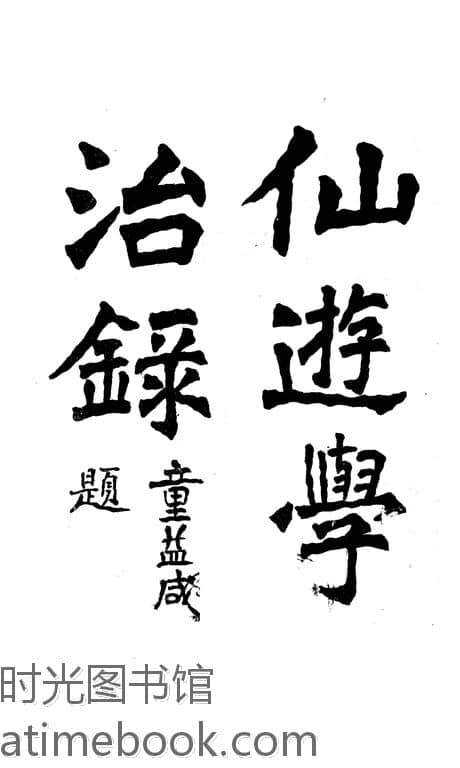 仙遊學
治錄
童益咸
題
时光图书馆
atimebook.com